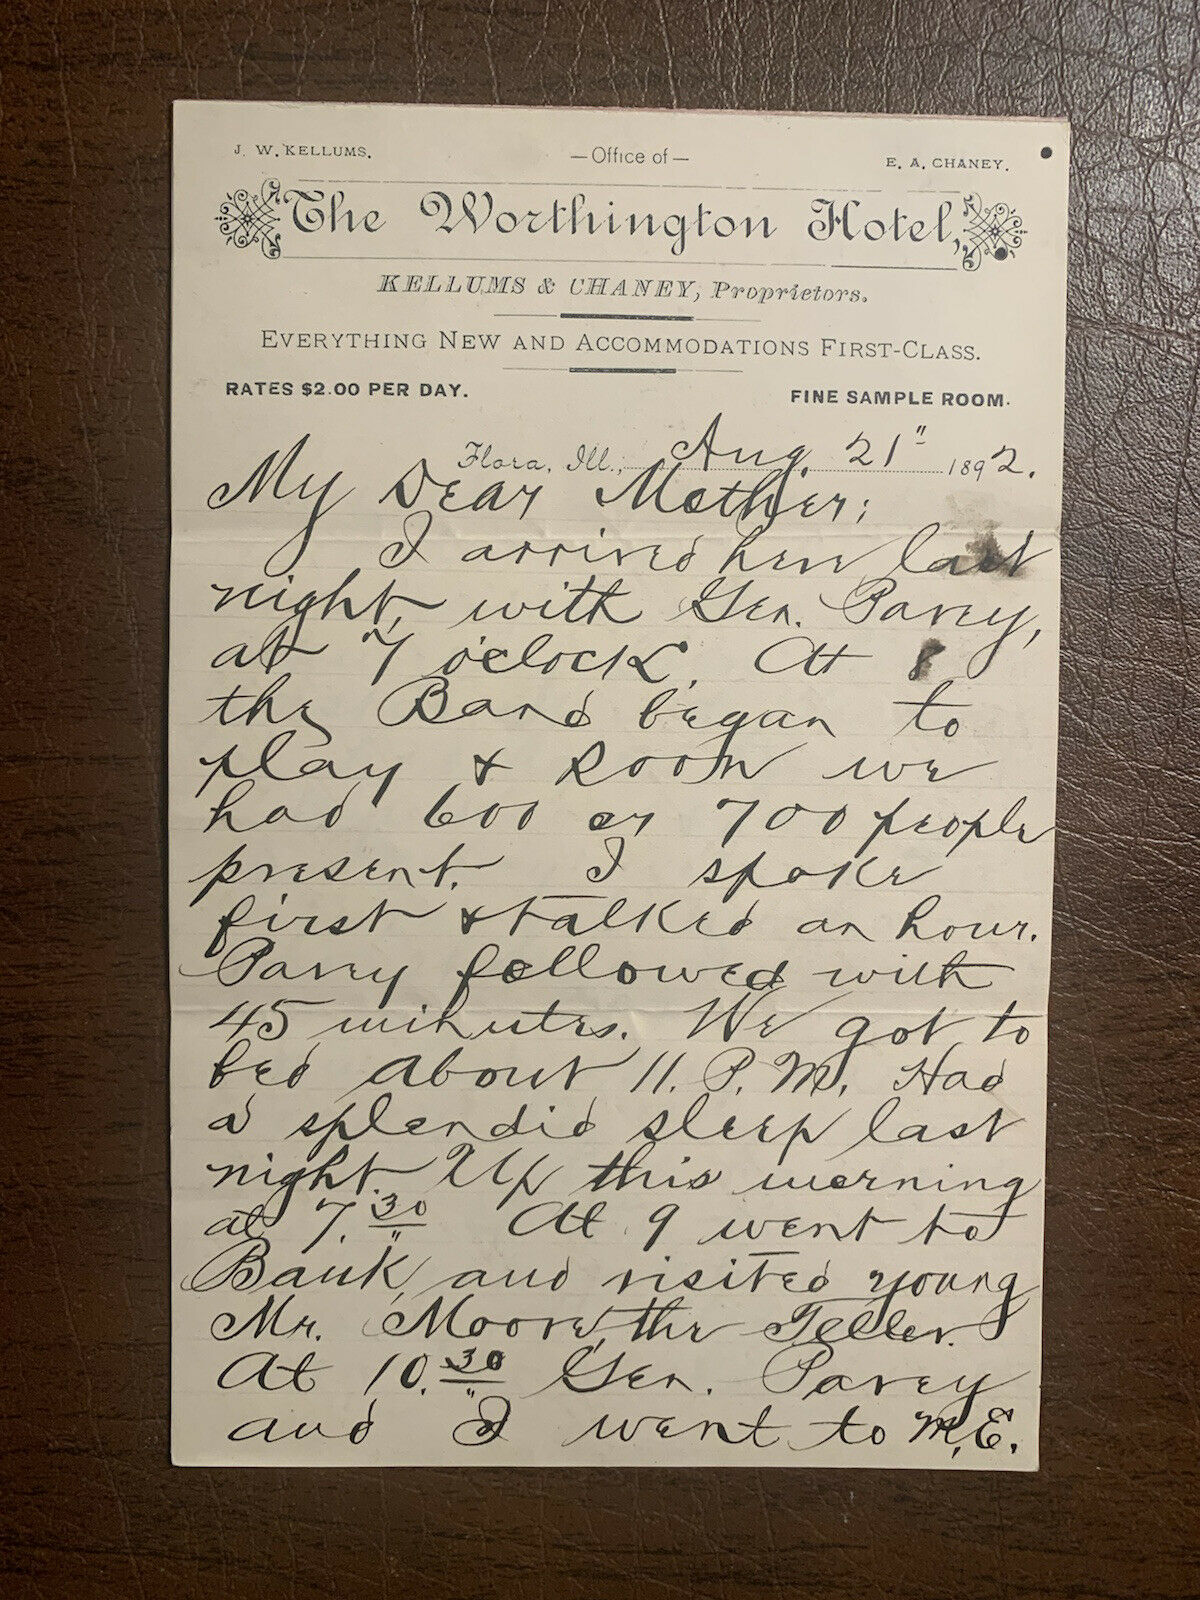 J. W. KELLUMS.
—Office of—
E. A. CHANEY.
The Worthington Hotel,
KELLUMS & CHANEY, Proprietors.
EVERYTHING NEW AND ACCOMMODATIONS FIRST-CLASS.
RATES $2.00 PER DAY.
FINE SAMPLE ROOM.
Flora, Ill., Aug. 21" 1892.
My Dear Mother;
I arrived here last
night, with Gen. Pavey,
at 7 o'clock. At 8
the Band began to
play & soon we
had 600 or 700 people
present. I spoke
first & talked an hour.
Pavey followed with
45 minutes. We got to
bed about 11. P.M. Had
a splendid sleep last
night Up this morning
at 7.30" At 9 went to
Bank, and visited young
Mr. Moore, the Teller.
At 10.30" Gen. Pavey
and I went to M.E.